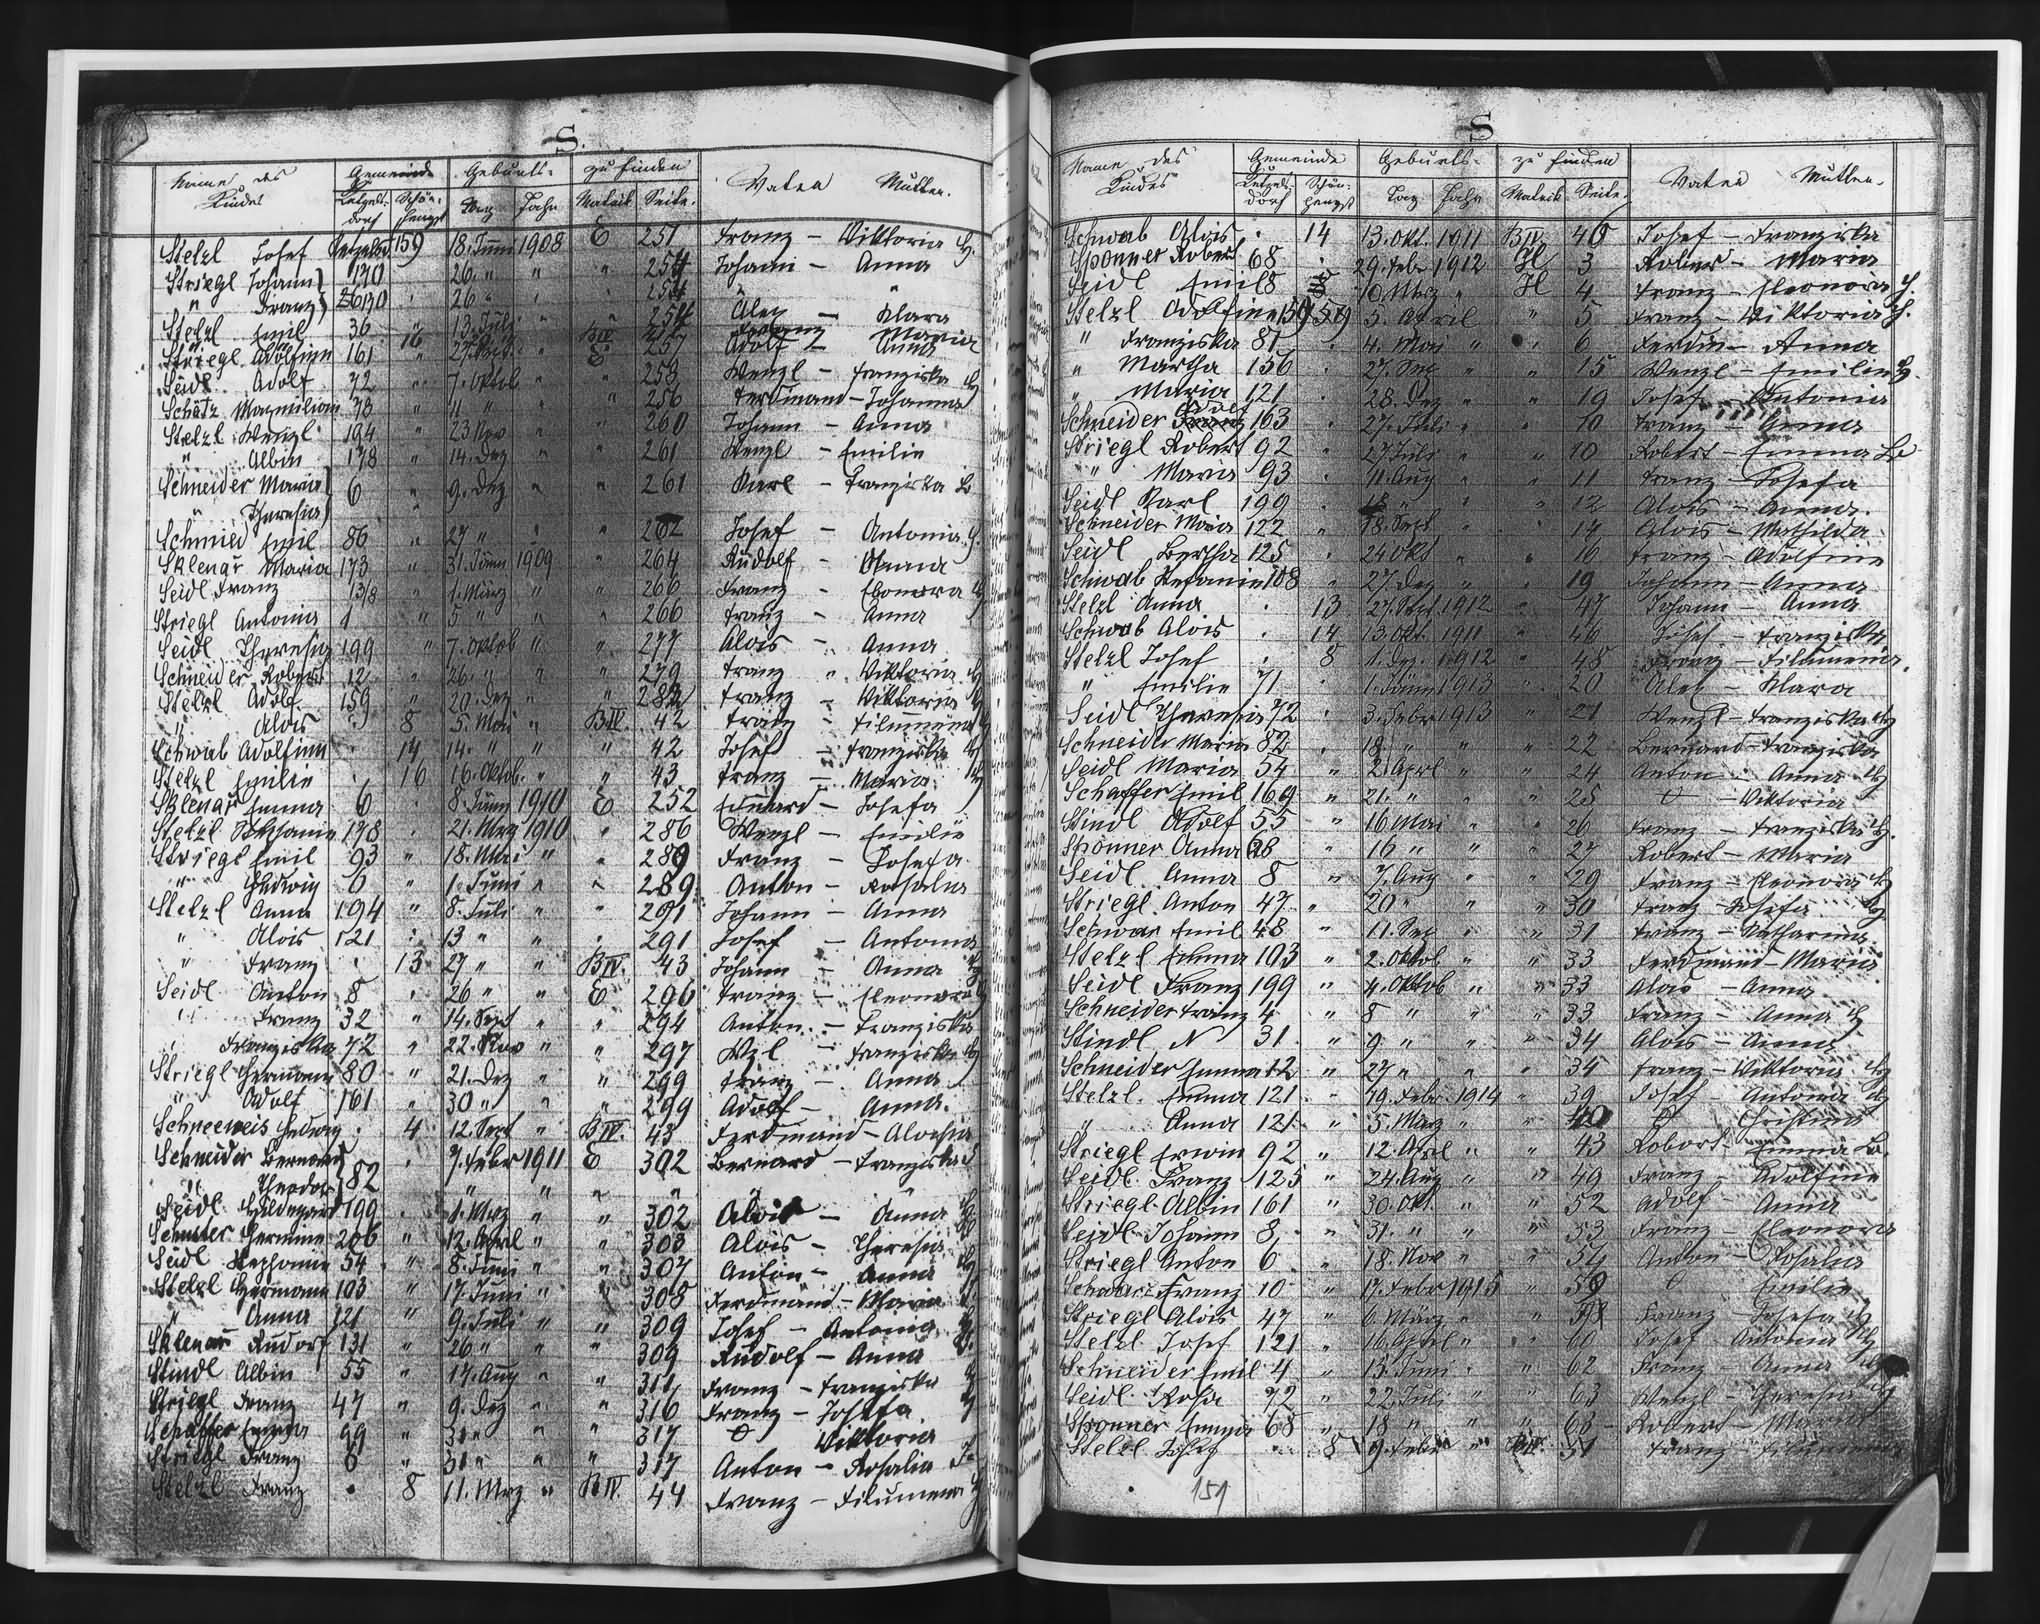 S.
Name des Kindes Gemeinde Geburts- zu finden Vater Mutter.
Ketzelsdorf Schönhengst Tag Jahr Matrik Seite.
Stelzl Josef 159 18. Juni 1908 E 251 Franz – Viktoria
Striegl Johann 170 26. " " 254 Johann – Anna
" Franz 26 " 254 "
Stelzl Emil 36 13. Juli 254 Alex – Klara
16 BIV Franz Maria
Striegl Adolfine 161 " E 257 Adolf – Anna
Seidl Adolf 72 " 7. Oktob " " 258 Wenzl – Franziska
Schätz Maxmilian 78 " 11. " " 256 Ferdinand – Johanna
Stelzl Wenzl 194 " 23 Nov " " 260 Johann – Anna
" Albin 178 " 14. Dez " " 261 Wenzl – Emilie
Schneider Maria 6 " 9. Dez " " 261 Karl – Franziska
" Theresia
Schmied Emil 86 " 27 " " 262 Josef – Antonia
Sklenař Maria 173 " 31. Jänn 1909 " 264 Rudolf – Anna
Seidl Franz " 1. März " " 266 Franz – Eleonora
Striegl Antonia " 5 " " " 266 Franz – Anna
Seidl Theresia 199 " 7. Oktob " " 277 Alois – Anna
Schneider Robert 12 " 26. " " 279 Franz " Viktoria
Stelzl Adolf 159 " 20. Dez " " 282 Franz – Viktoria
" Alois 8 5. Mai " BIV. 42 Franz – Filumena
Schwab Adolfine 14 14. " " " 42 Josef – Franziska
Stelzl Emilie 16 16. Oktob. " " 43 Franz – Maria
Sklenař Emma 6 8. Jänn 1910 E 252 Eduard – Josefa
Stelzl Stephanie 178 21. Mrz 1910 " 286 Wenzl – Emilie
Striegl Emil 93 " 18. Mai " " 289 Franz – Josefa
" Hedwig 6 " 1. Juni " " 289 Anton – Rosalia
Stelzl Anna 194 " 8. Juli " " 291 Johann – Anna
" Alois 121 13 " " 291 Josef – Antonia
" Franz 13 27 " " BIV. 43 Johann – Anna
Seidl Anton 8 26 " " E 296 Franz – Eleonora
" Franz 32 " 14. Sept " " 294 Anton – Franziska
Franziska 72 " 22. Nov " " 297 Wzl – Franziska
Striegl Hermann 80 " 21. Dez " " 299 Franz – Anna
" Adolf 161 " 30 " " " 299 Adolf – Anna.
Schneeweis Hedwig 4 12. Sept " BIV. 43 Ferdinand – Aloisia
Schneider Bernard 82 7. Febr 1911 E 302 Bernard – Franziska
" Theodor " " " "
Seidl Hildegard 199 1. Mrz " " 302 Alois – Anna
Schuster Hermine 206 " 12. April " " 303 Alois – Theresia
Seidl Stephanie 54 " 8. Juni " " 307 Anton – Anna
Stelzl Hermann 103 " 17. Juni " " 308 Ferdinand – Maria
" Anna 121 " 9. Juli " " 309 Josef – Antonia
Sklenař Rudolf 131 " 26 " " " 309 Rudolf – Anna
Stindl Albin 55 " 17. Aug " " 311 Franz – Franziska
Striegl Franz 47 " 9. Dez " " 316 Franz – Josefa
Schaffer Emma 99 " 31 " " " 317 O Viktoria
Striegl Franz 6 " 31 " " " 317 Anton – Rosalia
Stelzl Franz 8 11. Mrz " BIV. 44 Franz – Filumena
S
Name des Kindes Gemeinde Geburts- zu finden Vater Mutter.
Ketzelsdorf Schönhengst Tag Jahr Matrik Seite.
Schwab Alois 14 13. Okt. 1911 BIV. 46 Josef – Franziska
Sponner Robert 68 29. Febr 1912 3 Robert – Maria
Seidl Emil 8 10. Mrz " 4 Franz – Eleonora
Stelzl Adolfine 159 5. April " 5 Franz – Viktoria
" Franziska 81 4. Mai " " 6 Ferdin – Anna
" Martha 156 27. Sep " " 15 Wenzl – Emilie
" Maria 121 28. Dez " " 19 Josef – Antonia
Schneider Adolf 163 27. Juli " " 10 Franz – Anna
Striegl Robert 92 " 27. Juli " " 10 Robert – Emma
" Maria 93 11. Aug " " 11 Franz – Josefa
Seidl Karl 199 18 " " 12 Alois – Anna.
Schneider Maria 122 " 18. Sept " 14 Alois – Mathilda
Seidl Bertha 125 " 24 Okt " " 16 Franz – Adolfine
Schwab Stefanie 108 " 27. Dez " " 19 Johann – Anna
Stelzl Anna 13 27. Sept. 1912 " 47 Johann – Anna
Schwab Alois 14 13. Okt. 1911 " 46 Josef – Franziska
Stelzl Josef 8 1. Dez. 1912 " 48 Franz – Filumena.
" Emilie 71 1. Jänn 1913 " 20 Alex – Klara
Seidl Theresia 72 3. Febr 1913 " 21 Wenzl – Franziska
Schneider Maria 82 18. " " 22 Bernard – Franziska
Seidl Maria 54 " 2. Aprl " " 24 Anton – Anna
Schaffer Emil 169 " 21. " " " 25 O – Viktoria
Stindl Adolf 55 " 16 Mai " " 26 Franz – Franziska
Sponner Anna 68 " 16 " " " 27 Robert – Maria
Seidl Anna 8 " 7. Aug " " 29 Franz – Eleonora
Striegl Anton 47 " 20 " " " 30 Franz – Josefa
Schwar Emil 48 " 11. Sep " " 31 Franz – Katharina
Stelzl Emma 103 " 2. Oktob " " 33 Ferdinand – Maria
Seidl Franz 199 " 4. Oktob " " 33 Alois – Anna
Schneider Franz 4 " 8 " " " 33 Franz – Anna
Stindl N 31 " 9 " " " 34 Alois – Anna
Schneider Emma 12 " 27 " " " 34 Franz – Viktoria
Stelzl Emma 121 " 19. Febr. 1914 " 39 Josef – Antonia
" Anna 121 " 5. März " " 40 Christine
Striegl Erwin 92 " 12. Aprl " " 43 Robert – Emma
Seidl Franz 125 " 24. Aug " " 49 Franz – Adolfine
Striegl Albin 161 " 30. Okt. " " 52 Adolf – Anna
Seidl Johann 8 " 31. " " " 53 Franz – Eleonora
Striegl Anton 6 " 18. Nov " " 54 Anton – Rosalia
Schwarz Franz 10 " 17. Febr 1915 " O Emilie
Striegl Alois 47 " 6. März " " Franz – Josefa
Stelzl Josef 121 " 16. April " " 60 Josef – Antonia
Schneider Emil 4 " 13. Juni " " 62 Franz – Anna
Seidl Rosa 72 " 22. Juli " " 63 Wenzl – Theresia
Sponner Emma 68 " 18 " " " 68 Robert – Maria
Stelzl Josef 8 9. Febr " BIV. 51 Franz Filumena
151